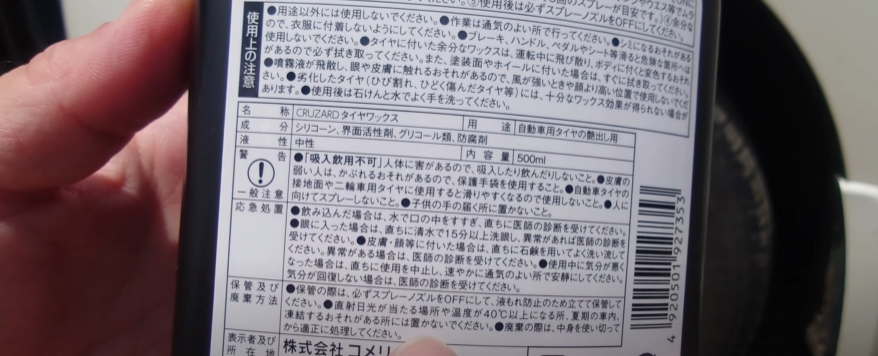 回のスプレーが目安です。)④余分な
ださい。⑤使用後は必ずスプレーノズルをOFFにしてください。
使用上の注意
●用途以外には使用しないでください。●作業は通気のよい所で行ってください。●シミになるおそれがある
ので、衣服に付着しないようにしてください。●ブレーキ、ハンドル、ペダルやシート等滑ると危険な箇所へは
使用しないでください。●タイヤに付いた余分なワックスは、運転中に飛び散り、ボディに付くと変色するおそれ
があるので必ず拭き取ってください。また、塗装面やホイールに付いた場合は、すぐに拭き取ってください。
●噴霧液が飛散し、眼や皮膚に触れるおそれがあるので、風が強いときや顔より高い位置で使用しないでくだ
さい。●劣化したタイヤ(ひび割れ、ひどく傷んだタイヤ等)には、十分なワックス効果が得られない場合が
あります。●使用後は石けんと水でよく手を洗ってください。
名 称 CRUZARDタイヤワックス 用 途 自動車用タイヤの艶出し用
成 分 シリコーン、界面活性剤、グリコール類、防腐剤
液 性 中性 内 容 量 500ml
警 告
一般注意
●「吸入飲用不可」人体に害があるので、吸入したり飲んだりしないこと。●皮膚の
弱い人は、かぶれるおそれがあるので、保護手袋を使用すること。●自動車タイヤの
接地面や二輪車用タイヤに使用すると滑りやすくなるので使用しないこと。●人に
向けてスプレーしないこと。●子供の手の届く所に置かないこと。
応急処置
●飲み込んだ場合は、水で口の中をすすぎ、直ちに医師の診断を受けてください。
●眼に入った場合は、直ちに清水で15分以上洗眼し、異常があれば医師の診断を
受けてください。●皮膚・顔等に付いた場合は、直ちに石鹸を用いてよく洗い流して
ください。異常がある場合は、医師の診断を受けてください。●使用中に気分が悪く
なった場合は、直ちに使用を中止し、速やかに通気のよい所で安静にしてください。
気分が回復しない場合は、医師の診断を受けてください。
保管及び
廃棄方法
●保管の際は、必ずスプレーノズルをOFFにして、液もれ防止のため立てて保管して
ください。●直射日光が当たる場所や温度が40℃以上になる所、夏期の車内、
凍結するおそれがある所には置かないでください。●廃棄の際は、中身を使い切って
から適正に処理してください。
表示者及び
所 在 地
株式会社 コメリ
4920501927353